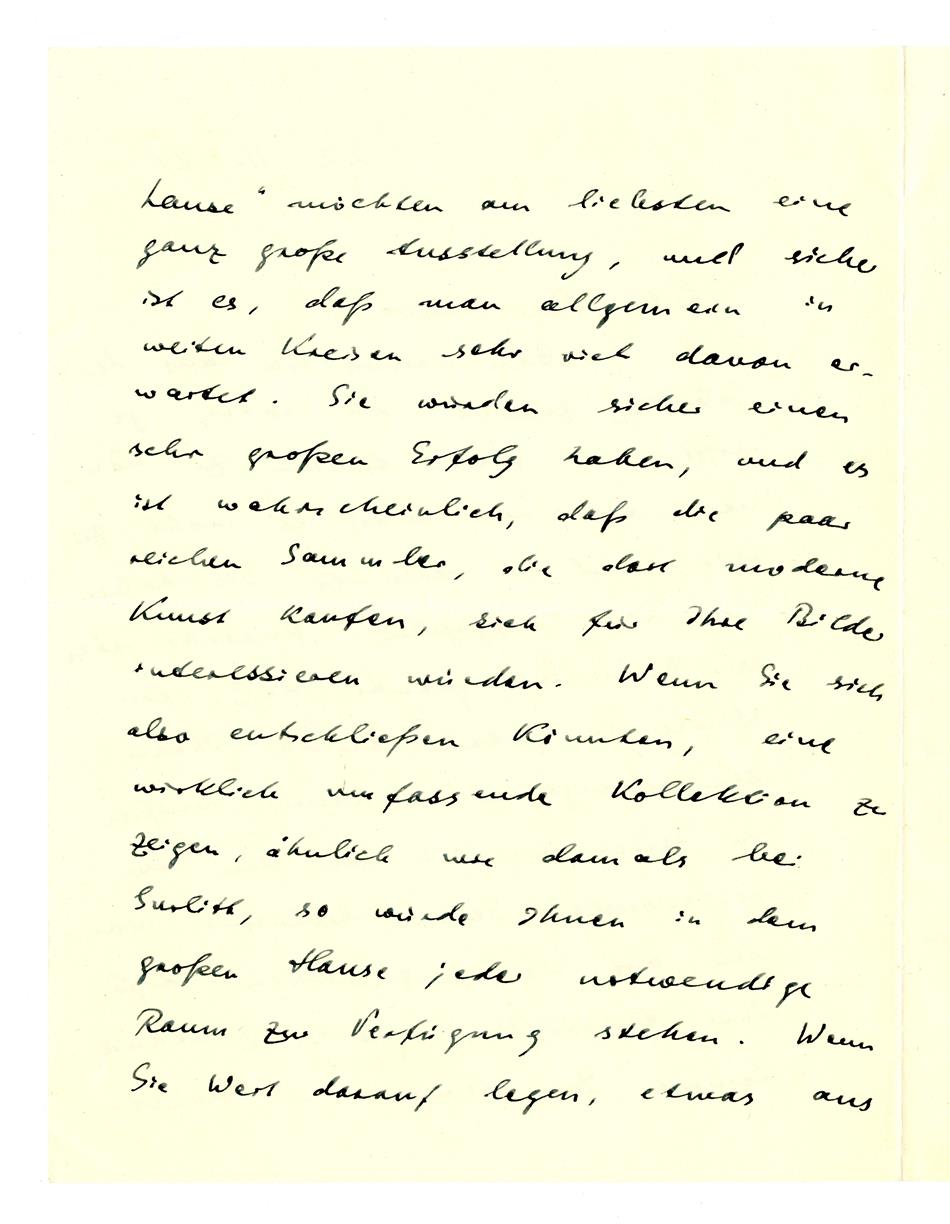 hause" möchten am liebsten eine
ganz große Ausstellung, und sicher
ist es, daß man allgemein in
weiten Kreisen sehr viel davon er-
wartet. Sie würden sicher einen
sehr großen Erfolg haben, und es
ist wahrscheinlich, daß die paar
reichen Sammler, die dort moderne
Kunst kaufen, sich für Ihre Bilder
interessieren würden. Wenn Sie sich
also entschließen könnten, eine
wirklich umfassende Kollektion zu
zeigen, ähnlich wie damals bei
Gurlitt, so würde Ihnen in dem
großen Hause jeder notwendige
Raum zur Verfügung stehen. Wenn
Sie Wert darauf legen, etwas aus